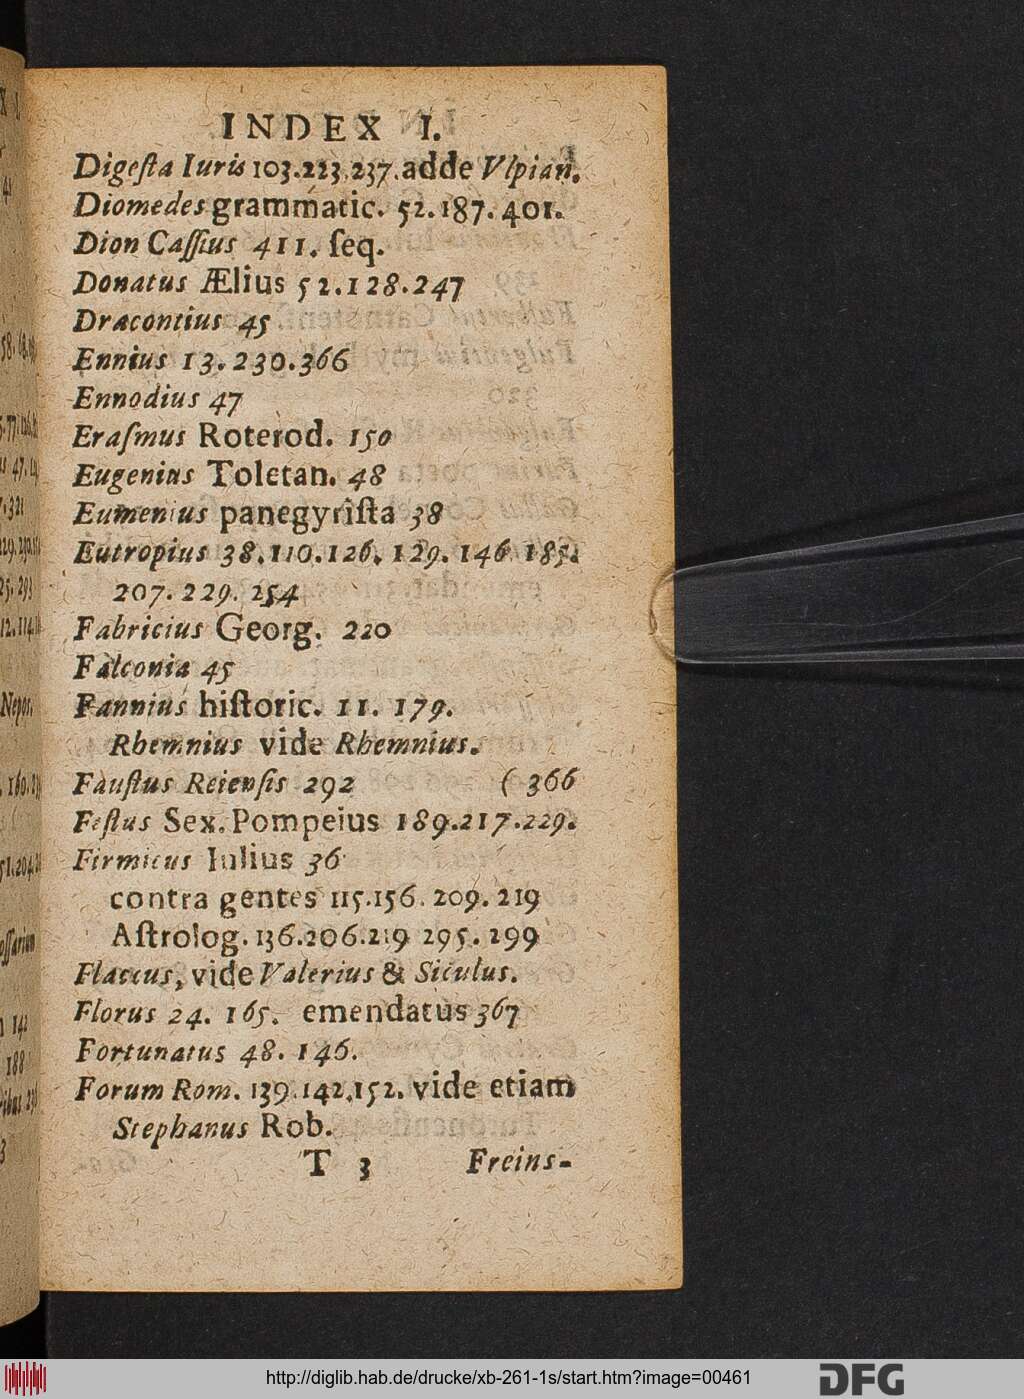 INDEX I.
Digeſta Iuris 103.223.237. adde Vlpian.
Diomedes grammatic. 52.187.401.
Dion Caſſius 411. ſeq.
Donatus Ælius 52.128.247
Dracontius 45
Ennius 13.230.366
Ennodius 47
Eraſmus Roterod. 150
Eugenius Toletan. 48
Eumenius panegyriſta 38
Eutropius 38.110.126.129.146 185.
207.229.254
Fabricius Georg. 220
Falconia 45
Fannius hiſtoric. 11. 179.
Rhemnius vide Rhemnius.
Fauſtus Reienſis 292 ( 366
Feſtus Sex. Pompeius 189.217.229.
Firmicus Iulius 36
contra gentes 115.156.209.219
Aſtrolog. 136.206.219 295.299
Flaccus, vide Valerius & Siculus.
Florus 24. 165. emendatus 367
Fortunatus 48. 146.
Forum Rom. 139.142.152. vide etiam
Stephanus Rob.
T 3 Freins-
http://diglib.hab.de/drucke/xb-261-1s/start.htm?image=00461
DFG